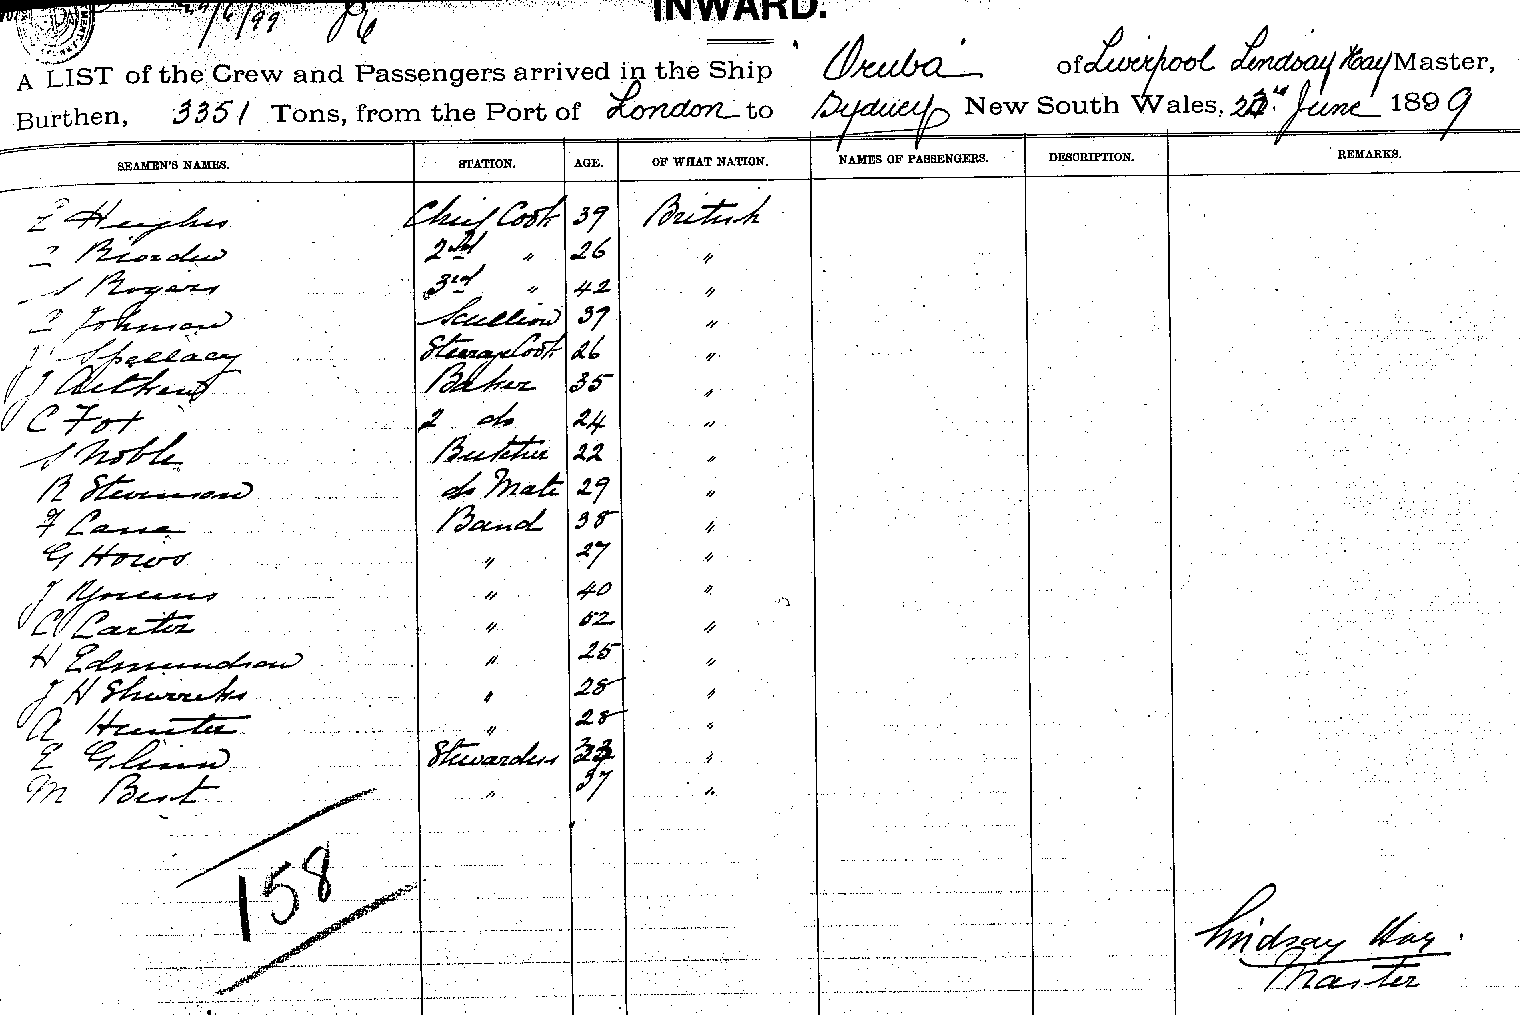 29/6/99
INWARD.
A LIST of the Crew and Passengers arrived in the Ship Oruba of Liverpool Lindsay Hay Master,
Burthen, 3351 Tons, from the Port of London to Sydney New South Wales, June 1899
SEAMEN'S NAMES. STATION. AGE. OF WHAT NATION. NAMES OF PASSENGERS. DESCRIPTION. REMARKS.
E Hughes Chief Cook 39 British
Riordan 2nd " 26 "
S Rogers 3rd " 42 "
Johnson Scullion 39 "
J Spellacy Steerage Cook 26 "
J Aitkens Baker 35 "
C Fox 2 do 24 "
S Noble Butcher 22 "
R Stevenson do Mate 29 "
F Lane Band 38 "
G Hows " 27 "
J Youens " 40 "
C Carter " 52 "
H Edmundson " 25 "
J H " 28 "
A Hunter " 28 "
E Glinn Stewardess 33 "
M Best " 37 "
158
Lindsay Hay.
Master